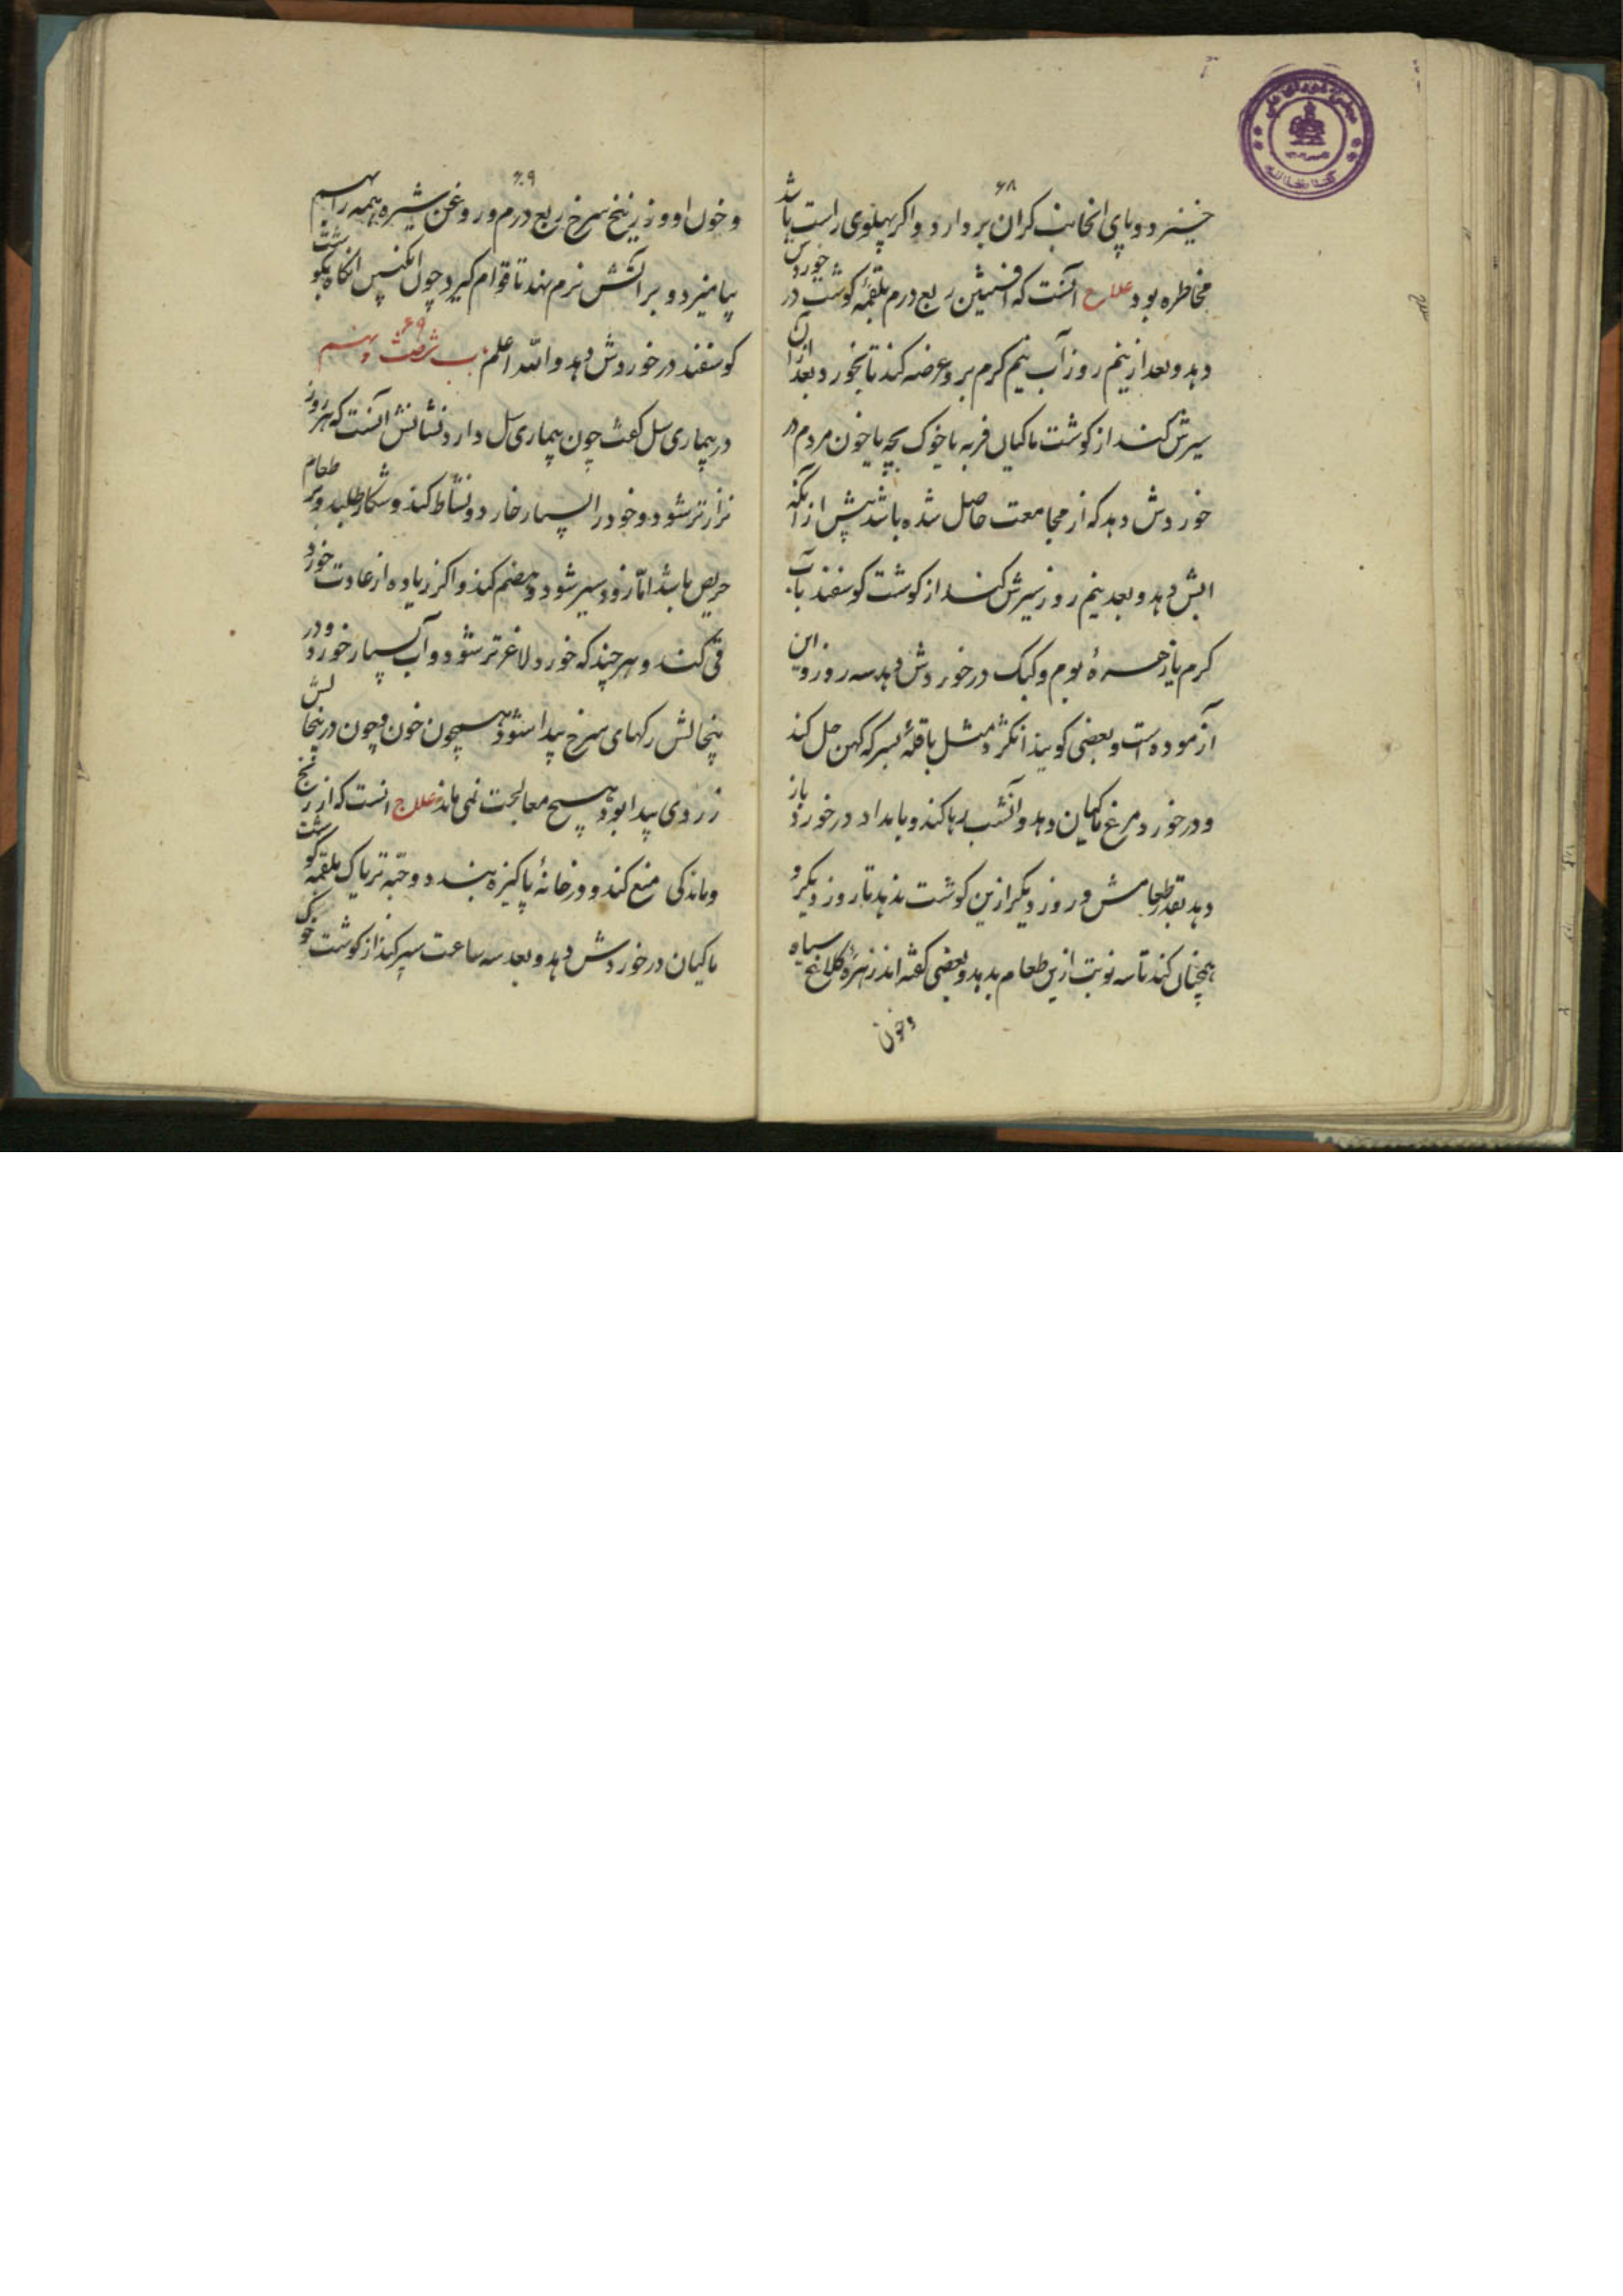 ۶۸
خیزد و پای انجانب کران بردارد و اگر پهلوی راست باشد
مخاطره بود علاج آنست که افسنتین ربع درم بلقمهٔ کوشت در خوردش
دهد و بعد از نیم روز آب نیم کرم برو عرضه کند تا بخورد و بعد ازان
سیرش کند از کوشت ماکیان فربه یا خوک بچه یا خون مردم در
خوردش دهد که از مجامعت حاصل شده باشد پیش از آنکه
ابش دهد و بعد نیم روز سیرش کند از کوشت کوسفند بآب
کرم یا زهرهٔ بوم و کبک در خوردش دهد سه روز و این
آزموده است و بعضی کویند انکژد مثل باقلهٔ بسرکه کهن حل کند
و در خورد مرغ ماکیان دهد و آنشب رها کند و بامداد در خورد باز
دهد بقدر طعامش و روز دیکر ازین کوشت ندهد تا روز دیکر و
همچنان کند تا سه نوبت ازین طعام بدهد و بعضی گفته اند زهرهٔ کلاغ سیاه
و خون
۶۹
و خون او و زرنیخ سرخ ربع درم و روغن شیره همه را بهم
بیامیزد و بر آتش نرم نهد تا قوام کیرد چون انکبین انکاه بکوشت
کوسفند در خوردش دهد والله اعلم باب شصت و نهم ۶۹
در بیماری سل کفت چون بیماری سل دارد نشانش آنست که هر روز
نزارتر شود و خود را بسیار خارد و نشاط کند و شکار طلبد و بر طعام
حریص باشد اما زود سیر شود و هضم کند و اکر زیاده از عادت خورد
قی کند و هر چند که خورد لاغرتر شود و آب بسیار خورد و در
پنجالش رکهای سرخ پیدا شود همچون خون و چون در پنجالش
زردی پیدا بود هیچ معالجت نمی ماند علاج انست که از رنج
و ماندکی منع کند و در خانهٔ پاکیزه بندد و حبه تریاک بلقمه کوشت
ماکیان در خوردش دهد و بعد سه ساعت سیر کند از کوشت خوک